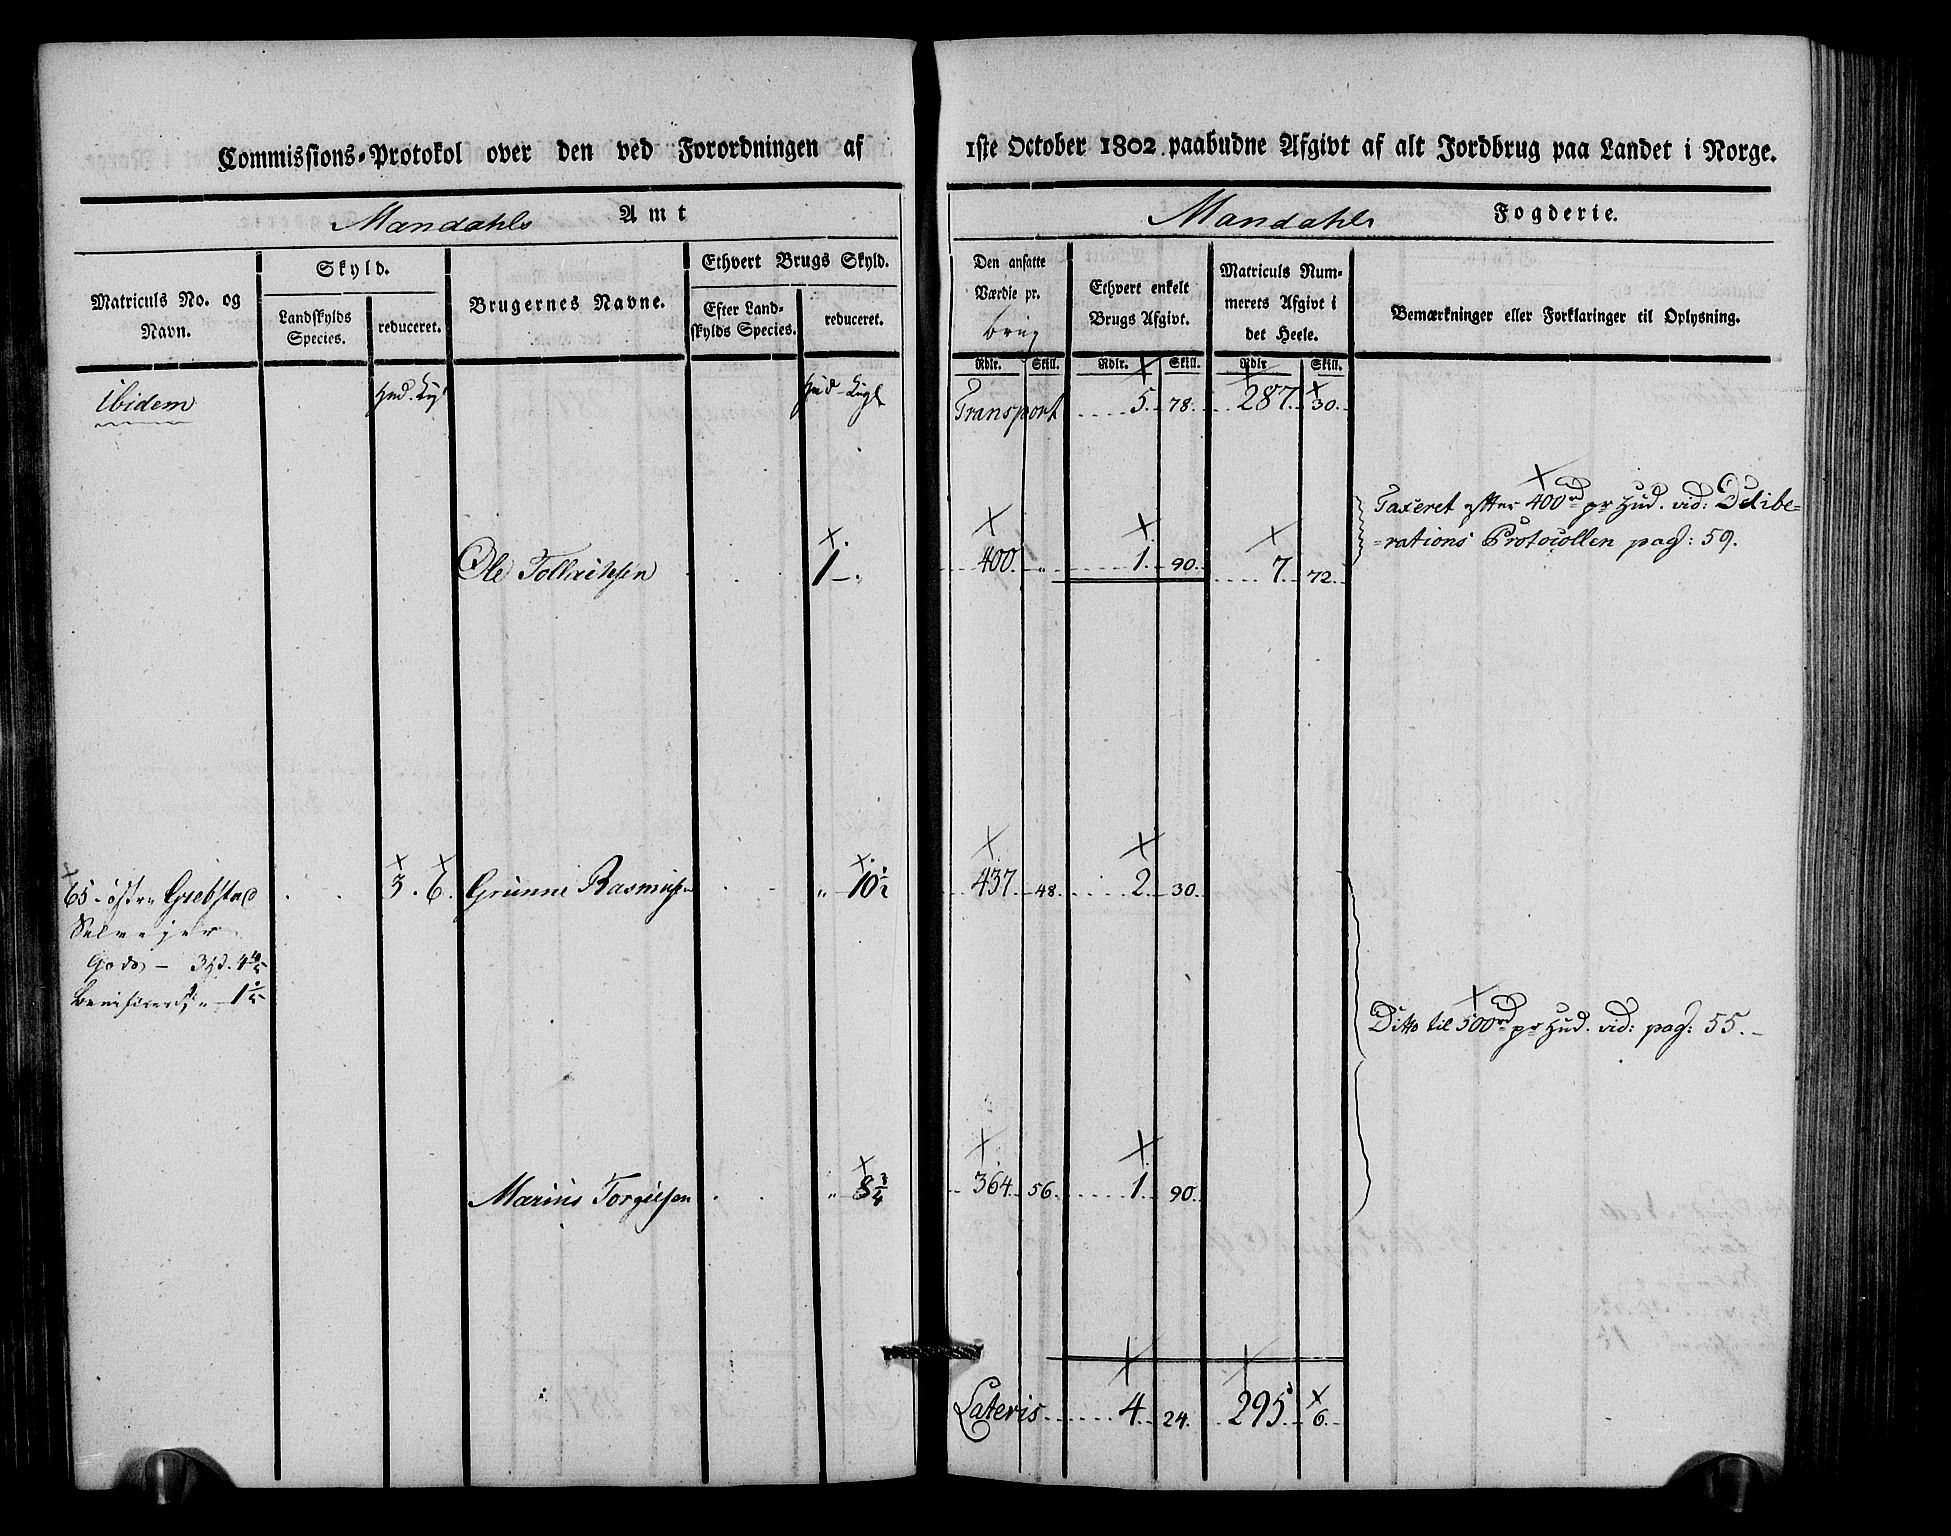 Commissions-Protokol over den ved Forordningen af
1ste October 1802 paabudne Afgivt af alt Jordbrug paa Landet i Norge.
Mandahls Amt
Mandahls Fogderie.
Matriculs No. og Navn.
Skyld.
Landskylds Species.
reduceret.
Brugernes Navne.
Ethvert Brugs Skyld.
Efter Landskylds Species.
reduceret.
Den ansatte Værdie pr. brug
Ethvert enkelt Brugs Afgivt.
Matriculs Nummerets Afgivt i det Heele.
Bemærkninger eller Forklaringer til Oplysning.
Rdlr. Skill. Rdlr. Skill. Rdlr Skill.
Ibidem Hud. Hud Transport 5. 78. 287. 30.
Taxeret efter 400rd pr Hud. vid: Delibe-
-rations Protocollen pag: 59.
Ole 1 - " 400. " 1. 90. 7. 72.
65 - østre Grebstad 3. 6. Gunne Rasmusen " 10½ 437. 48. 2. 30.
Selveyer
Gods - 3 Hd. 4½
1½
Ditto til 500rd pr Hud. vid: pag: 55. -
Marius Torgiesen " 8¾ 364. 56. 1. 90.
Lateris 4. 24. 295. 6.